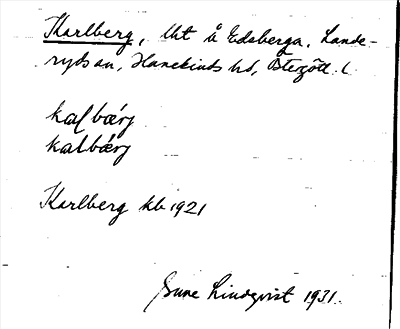 Karlberg, lht å Edsberga, Lande-
ryds sn, Hanekinds hd, Östergötl.
kalbærj
kalbærj
Karlberg kb 1921
Sune Lindqvist 1931.